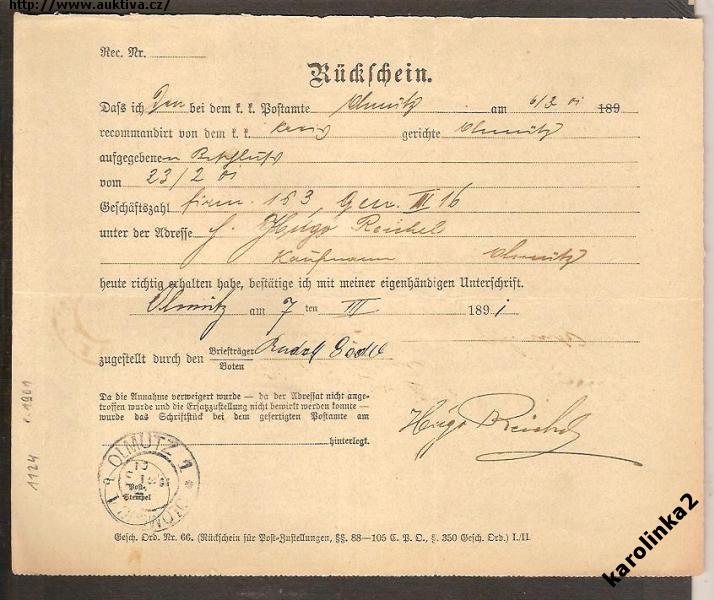 http://www.auktiva.cz/
Rec. Nr.
Rückschein.
Daß ich den bei dem k. k. Postamte Olmütz am 6/3 01 189
recommandirt von dem k. k. Kreis gerichte Olmütz
aufgegebenen Beschluß
vom 23/2 01
Geschäftszahl firm. 153, Gen. III 16
unter der Adresse H. Hugo Reichel
Kaufmann Olmütz
heute richtig erhalten habe, bestätige ich mit meiner eigenhändigen Unterschrift.
Olmütz am 7 ten III 1891
zugestellt durch den Briefträger Rudolf
Boten
Da die Annahme verweigert wurde — da der Adressat nicht ange-
troffen wurde und die Ersatzzustellung nicht bewirkt werden konnte —
wurde das Schriftstück bei dem gefertigten Postamte am
hinterlegt.
Hugo Reichel
OLMÜTZ 1
Post-
Stempel
Gesch. Ord. Nr. 66. (Rückschein für Post-Zustellungen, §§. 88—105 C. P. O., §. 350 Gesch. Ord.) I./II.
1124 r. 1901
karolinka2